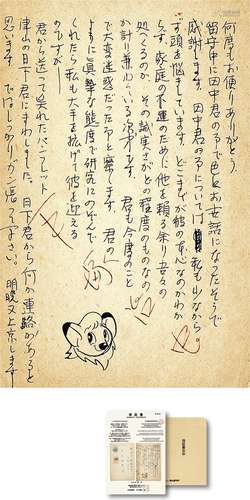 何度もお便りありがとう
留守中に田中君の事で色々お世話になったそうで
感謝しています。田中君の事については 私も少なから
ず頭を悩ましています。どこまでが彼の真心なのかわか
らず、家庭の不運のために他を頼る余り吾々の
処へくるのか、その誠実さがどの程度のものなの
か計り兼ねている次第です。君も今度のこと
で大変迷惑だったろうと察します。君の
ように真摯な態度で研究にのぞんで
くれたら私も大手を拡げて彼を迎える
のですが―
君から送って呉れたパンフレット
津山の日下君にまわしました。日下君から何か連絡があると
思います。ではしっかりがん張って下さい。明晩又上京します